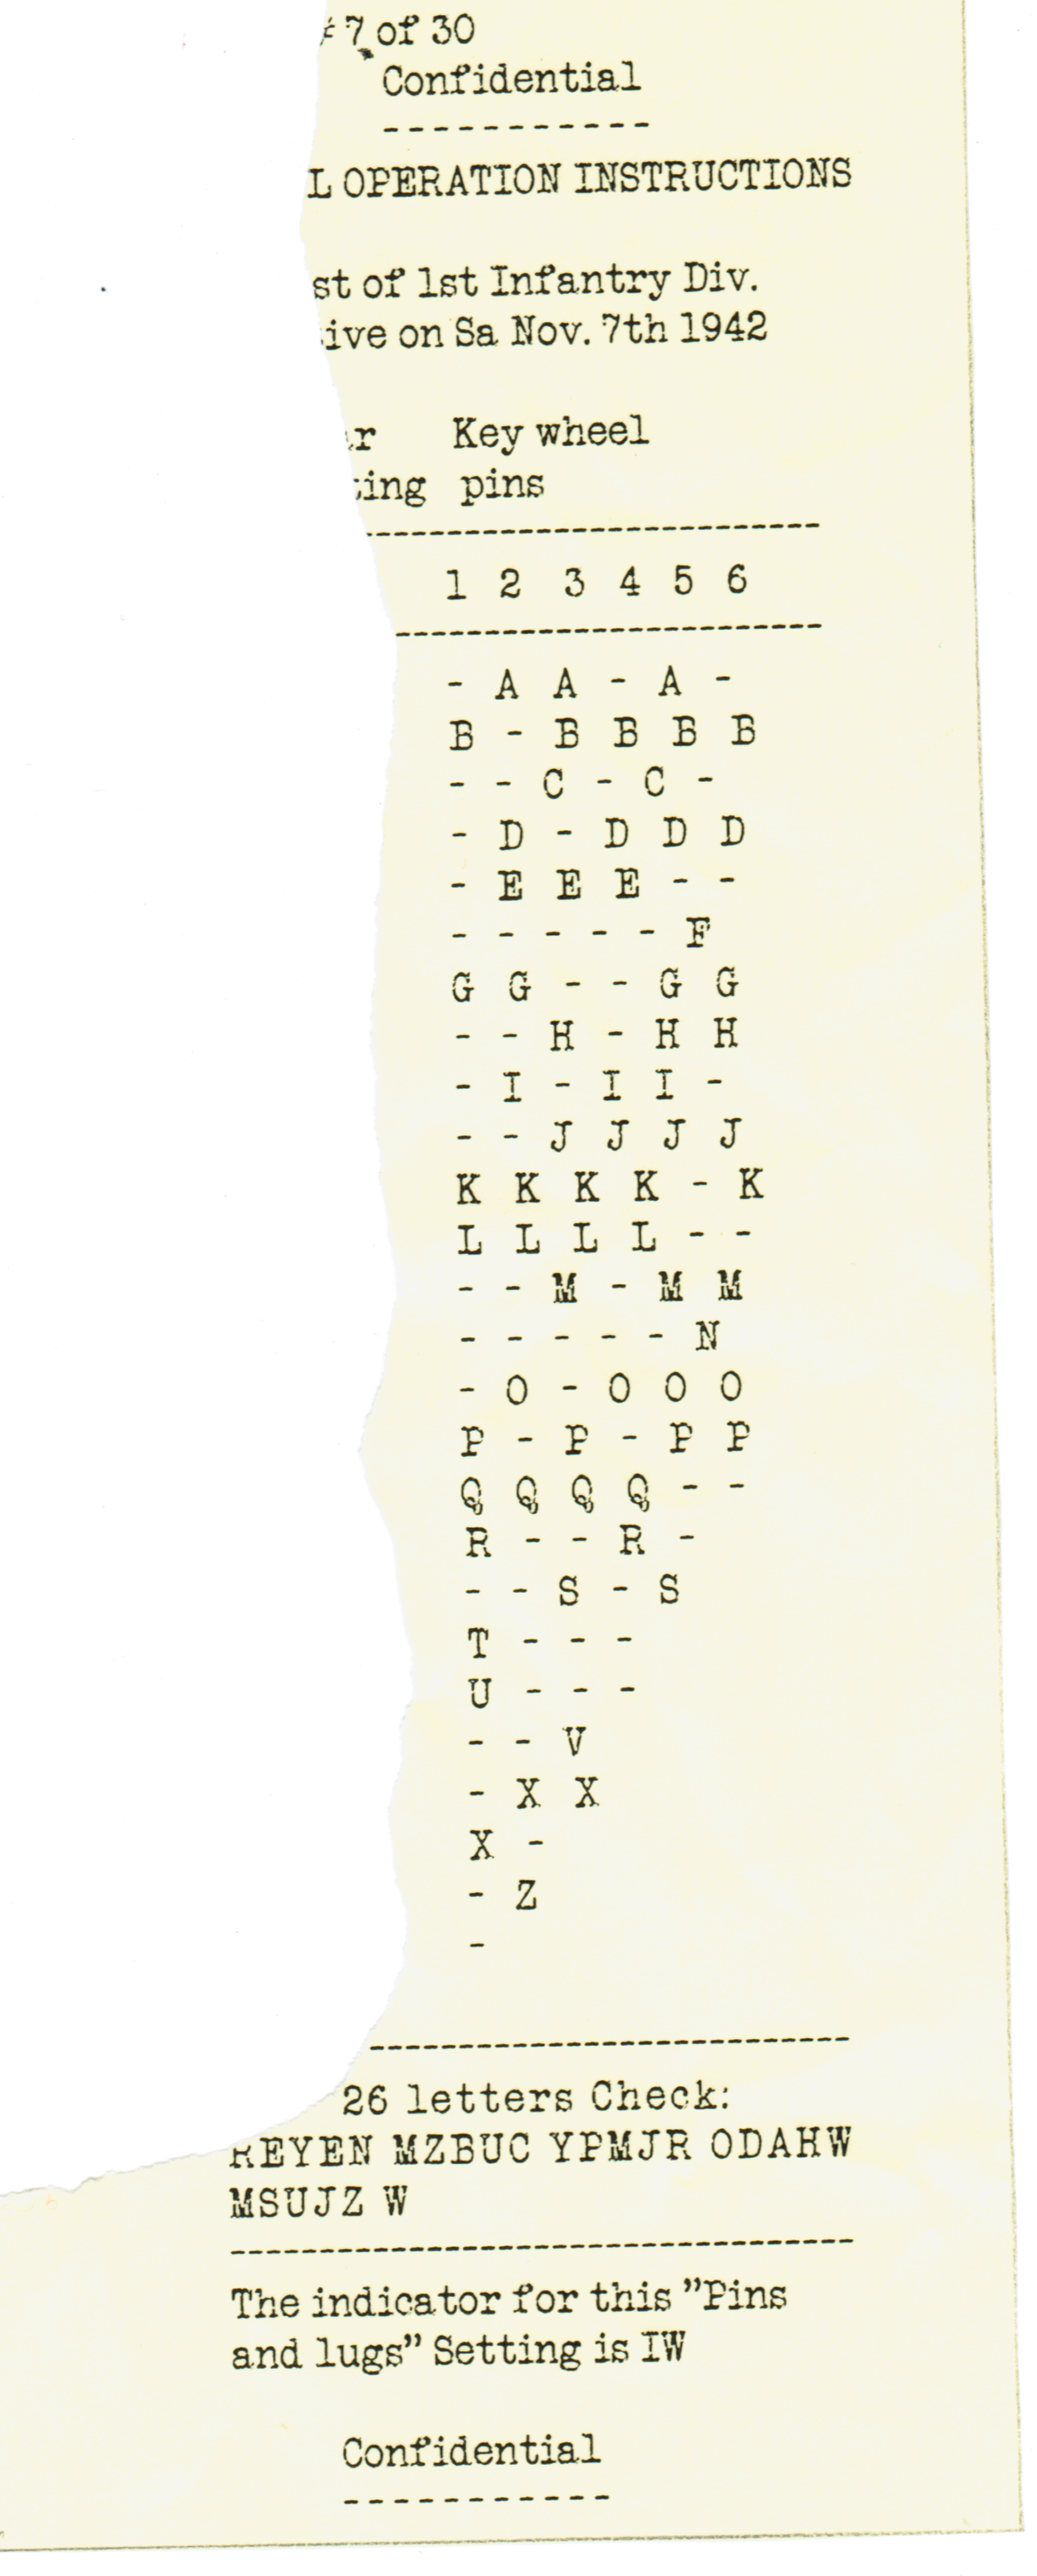 7 of 30
Confidential
-----------
L OPERATION INSTRUCTIONS
st of 1st Infantry Div.
ive on Sa Nov. 7th 1942
r Key wheel
ing pins
--------------------------
1 2 3 4 5 6
------------------------
- A A - A -
B - B B B B
- - C - C -
- D - D D D
- E E E - -
- - - - - F
G G - - G G
- - H - H H
- I - I I -
- - J J J J
K K K K - K
L L L L - -
- - M - M M
- - - - - N
- O - O O O
P - P - P P
Q Q Q Q - -
R - - R -
- - S - S
T - - -
U - - -
- - V
- X X
X -
- Z
-
---------------------------
26 letters Check:
REYEN MZBUC YPMJR ODAHW
MSUJZ W
-----------------------------------
The indicator for this "Pins
and lugs" Setting is IW
Confidential
-----------